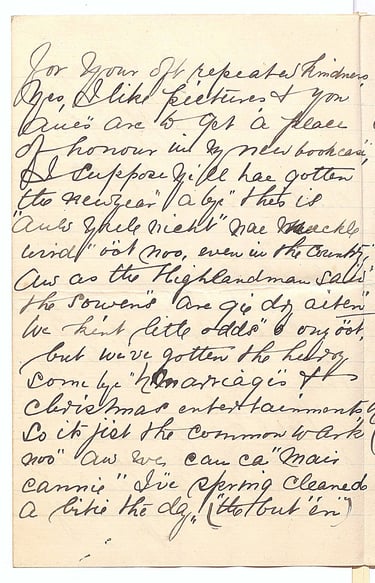 for your oft repeated kindness
Yes, I like pictures & you
anes are to get a place
of honour in my new bookcase,
& I suppose ye'll hae gotten
the newyear" a by" this is
"Auld Yule nicht" nae muckle
wird" oot noo, even in the country,
Aw as the Highlandman said
the sowens" are gie dry aiten"
We kent little odds" o ony o't,
but we've gotten the hurry
some bye" Marriages &
Christmas entertainments
So its jist the common wark
noo" aw we can ca "mair
cannie" I've spring cleaned
a bitie the day, (the but en")